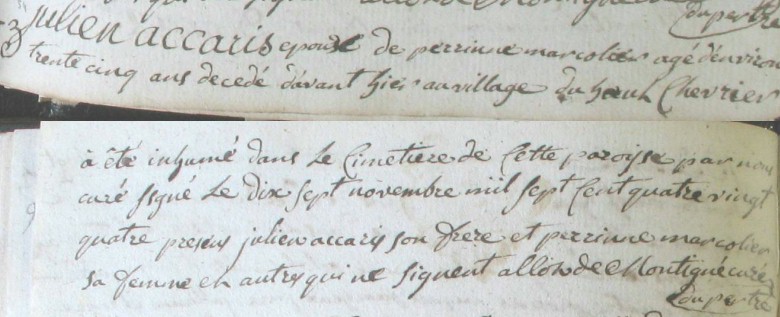 du pertre
julien accaris epoux de perrinne marcolier agé d'environ
trente cinq ans decedé d'avant hier au village du haut Chevrier
à été inhumé dans Le Cimetiere de Cette paroisse par nous
curé signé Le dix sept novembre mil sept Cent quatre vingt
quatre presens julien accaris son frere et perrinne marcolier
sa femme et autres qui ne signent allon de Montigné curé
du pertre